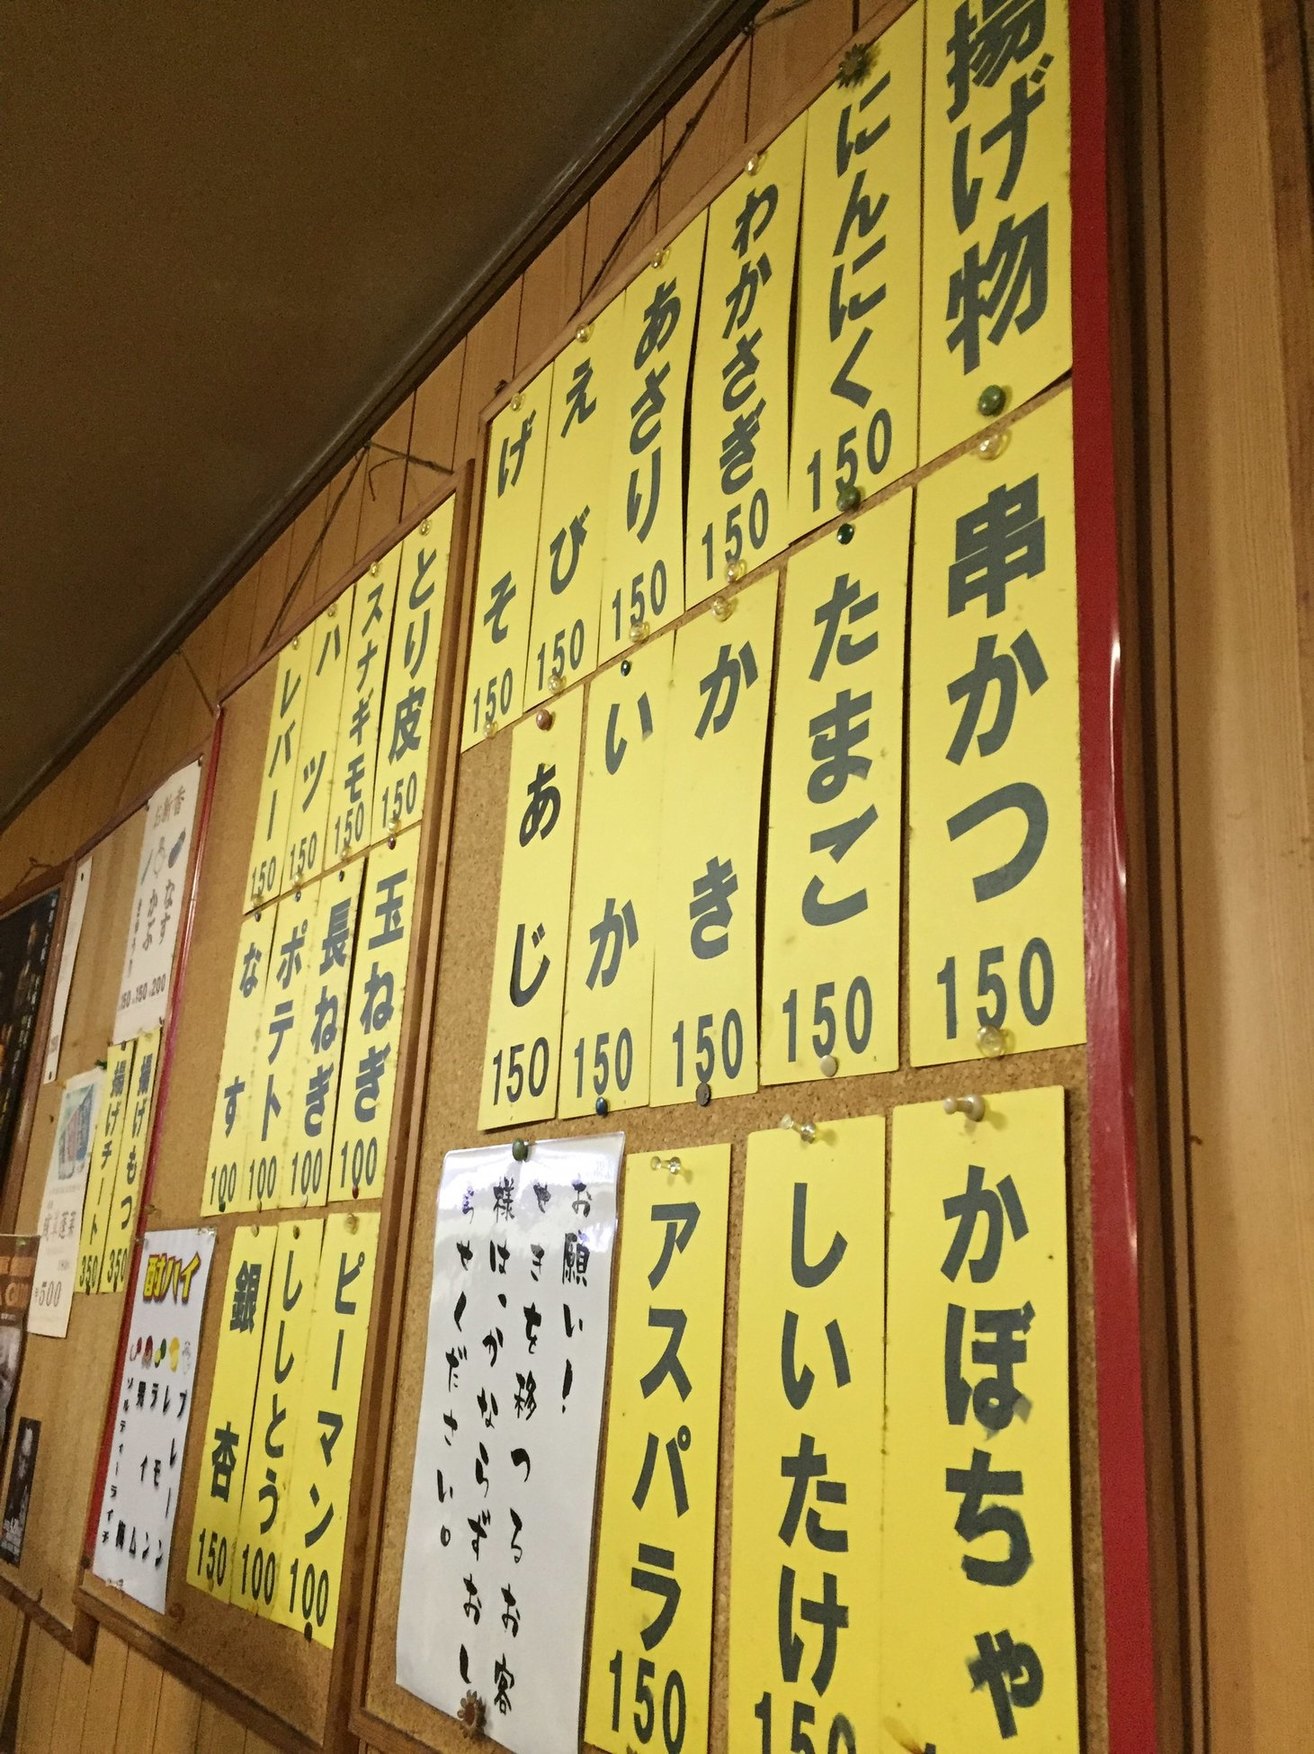 揚げ物
にんにく 150
わかさぎ 150
あさり 150
えび 150
げそ 150
串かつ 150
たまご 150
かき 150
いか 150
あじ 150
かぼちゃ
しいたけ 150
アスパラ 150
お願い!
やきを移つるお客
様は、かならずおし
らせください。
とり皮 150
スナギモ 150
ハツ 150
レバー 150
玉ねぎ 100
長ねぎ 100
ポテト 100
なす 100
ピーマン 100
ししとう 100
銀杏 150
お新香
なす
かぶ
150 150 200
揚げもつ 350
揚げチート 350
酎ハイ
プレーン
レモン
ライム
ソルティーライチ
500